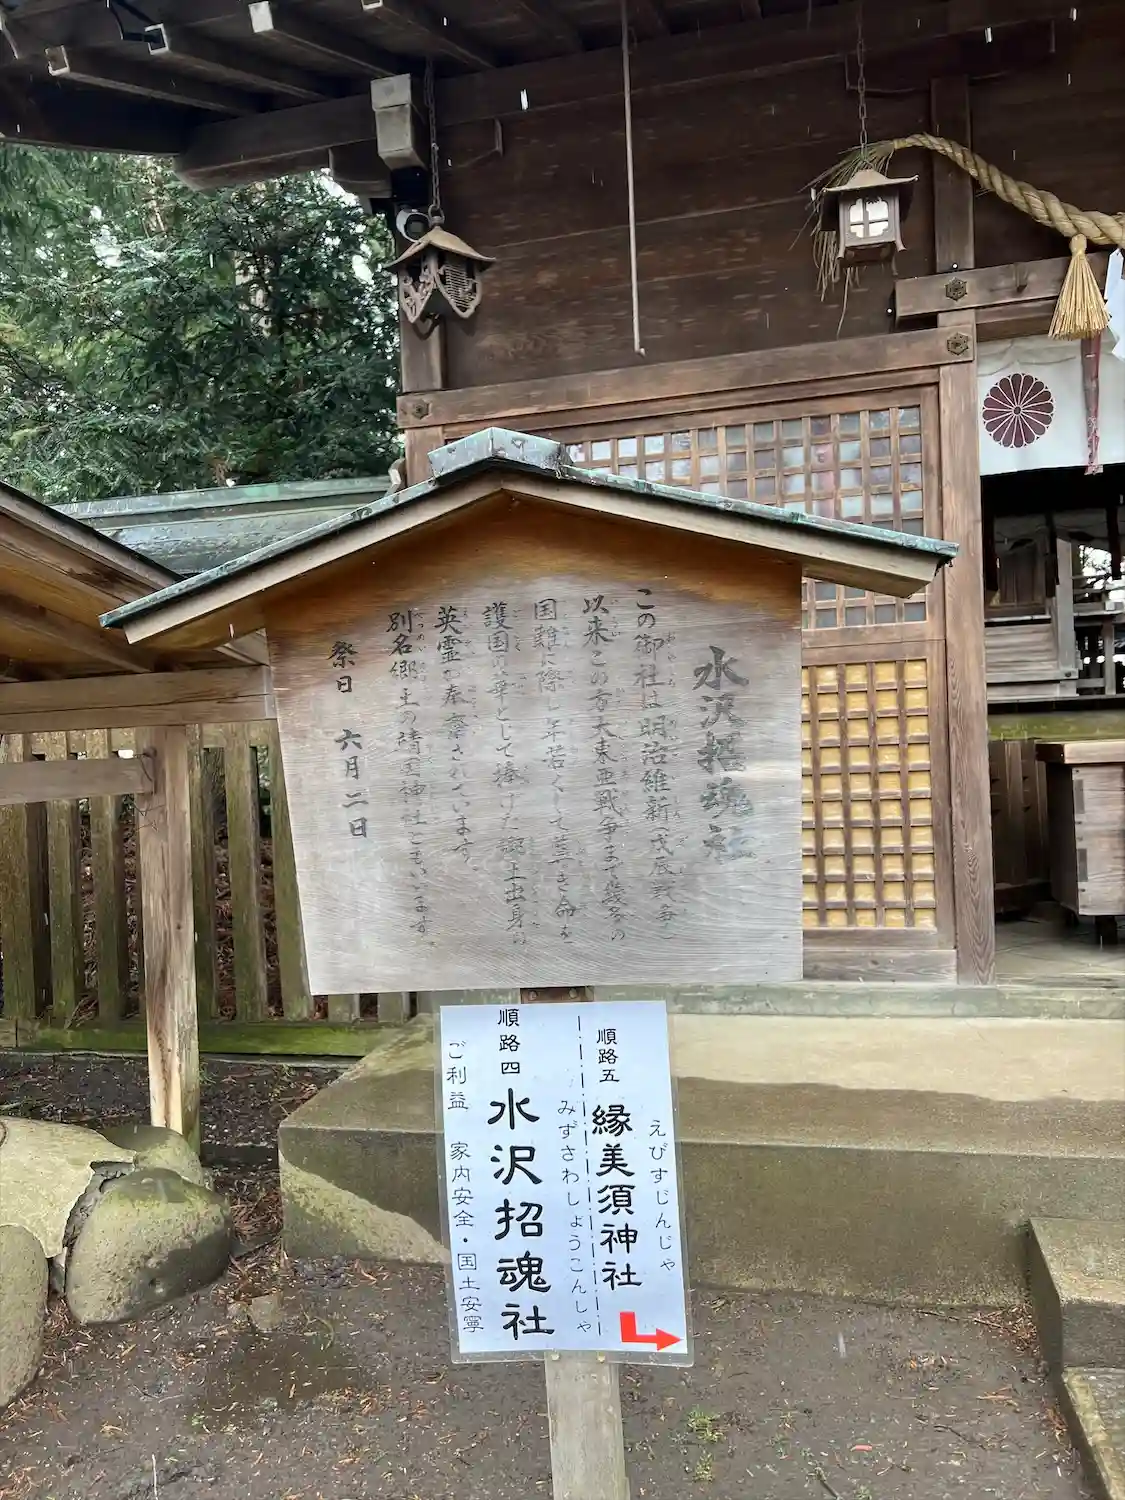 水沢招魂社
この御社は明治維新(戊辰戦争)
以来この方大東亜戦争まで幾多の
国難に際し年若くして尊き命を
護国の華として捧げた郷土出身の
英霊が奉斎されています。
別名郷土の靖国神社ともいいます。
祭日 六月二日
順路五 縁美須神社
えびすじんじゃ
順路四 水沢招魂社
みずさわしょうこんしゃ
ご利益 家内安全・国土安寧